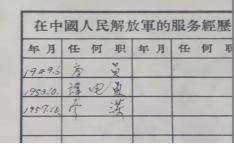 在中國人民解放軍的服务經歷
年 月 任 何 职 年 月 任 何 职
1949.6 学 員
1953.10. 譯电員
1957.10. 参 謀